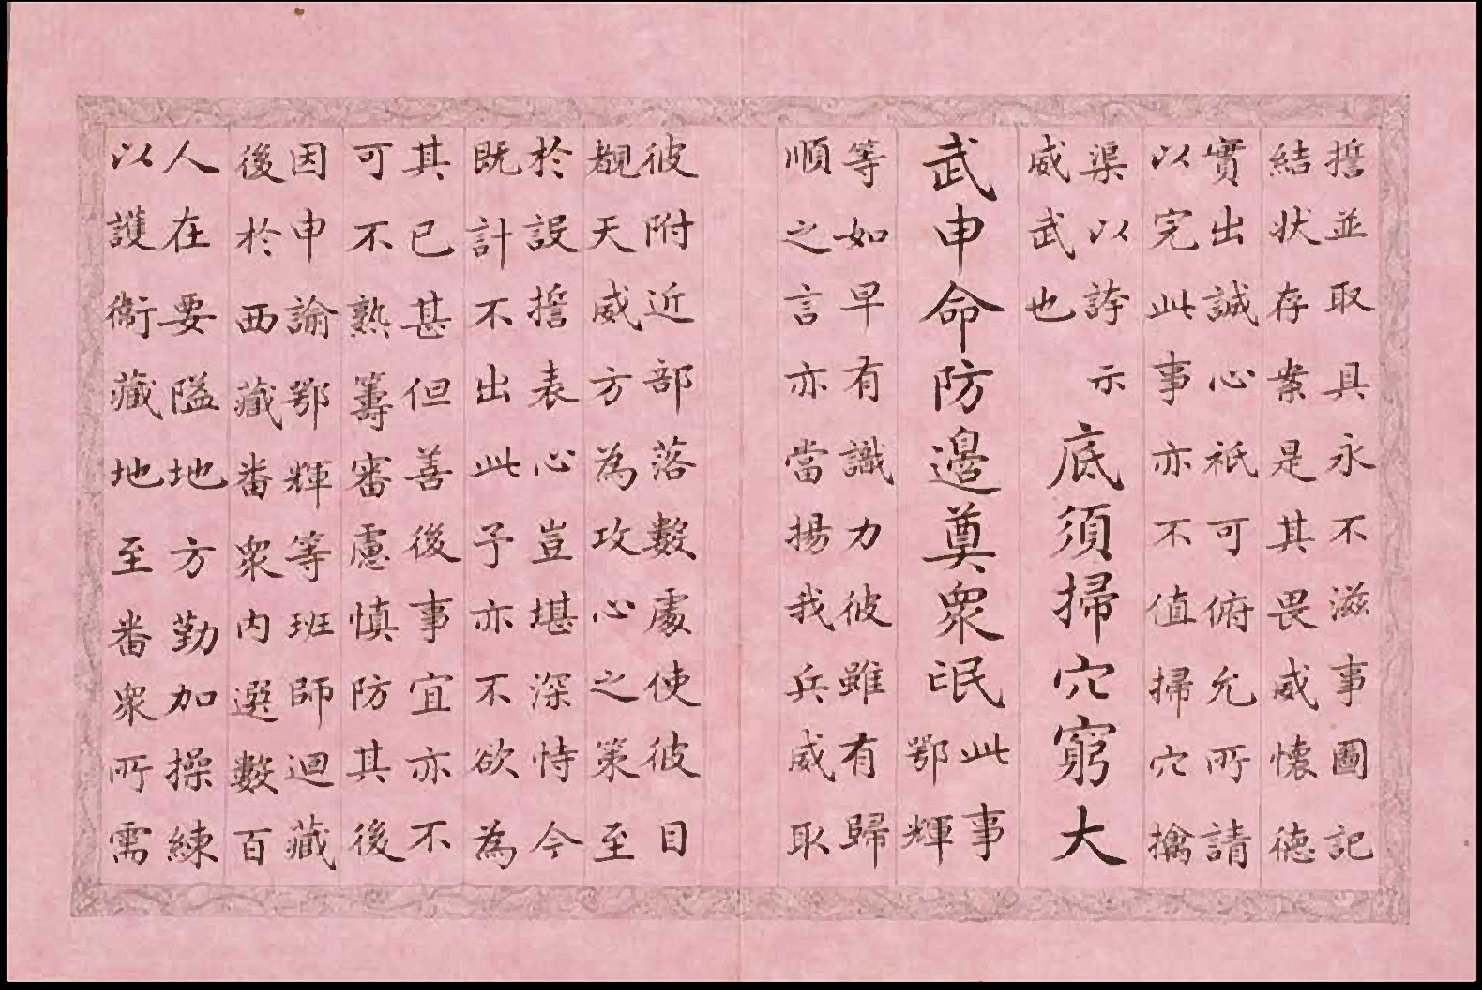 誓並取具永不滋事圖記
結狀存案是其畏威懷德
實出誠心祇可俯允所請
以完此事亦不值掃穴擒
渠以誇示
威武也
底須掃穴窮大
武申命防邊奠衆氓
此事
鄂輝
等如早有識力彼雖有歸
順之言亦當揚我兵威取
彼附近部落數處使彼目
覩天威方為攻心之策至
於設誓表心豈堪深恃今
既計不出此予亦不欲為
其已甚但善後事宜亦不
可不熟籌審慮慎防其後
因申諭鄂輝等班師迴藏
後於西藏番衆内選數百
人在要隘地方勤加操練
以護衛藏地至番衆所需